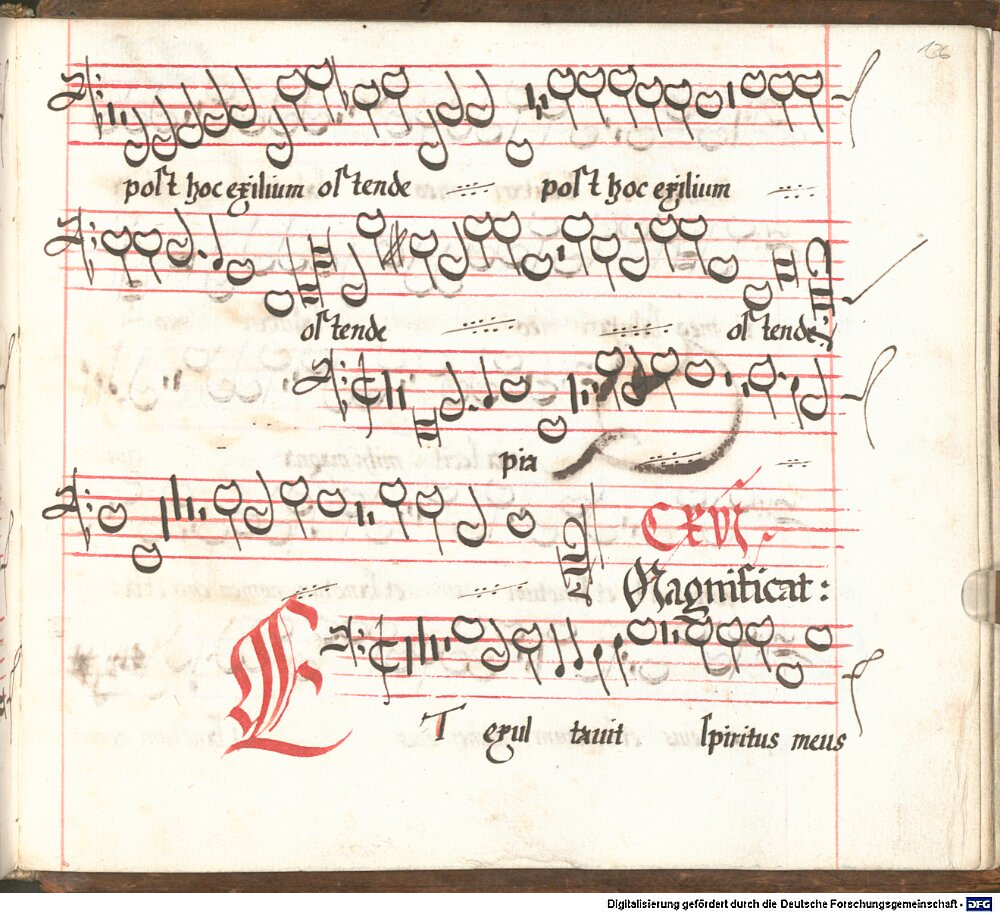 136
post hoc exilium ostende post hoc exilium
ostende ostende
pia
CXVI
Magnificat:
ET exul tauit spiritus meus
Digitalisierung gefördert durch die Deutsche Forschungsgemeinschaft - DFG